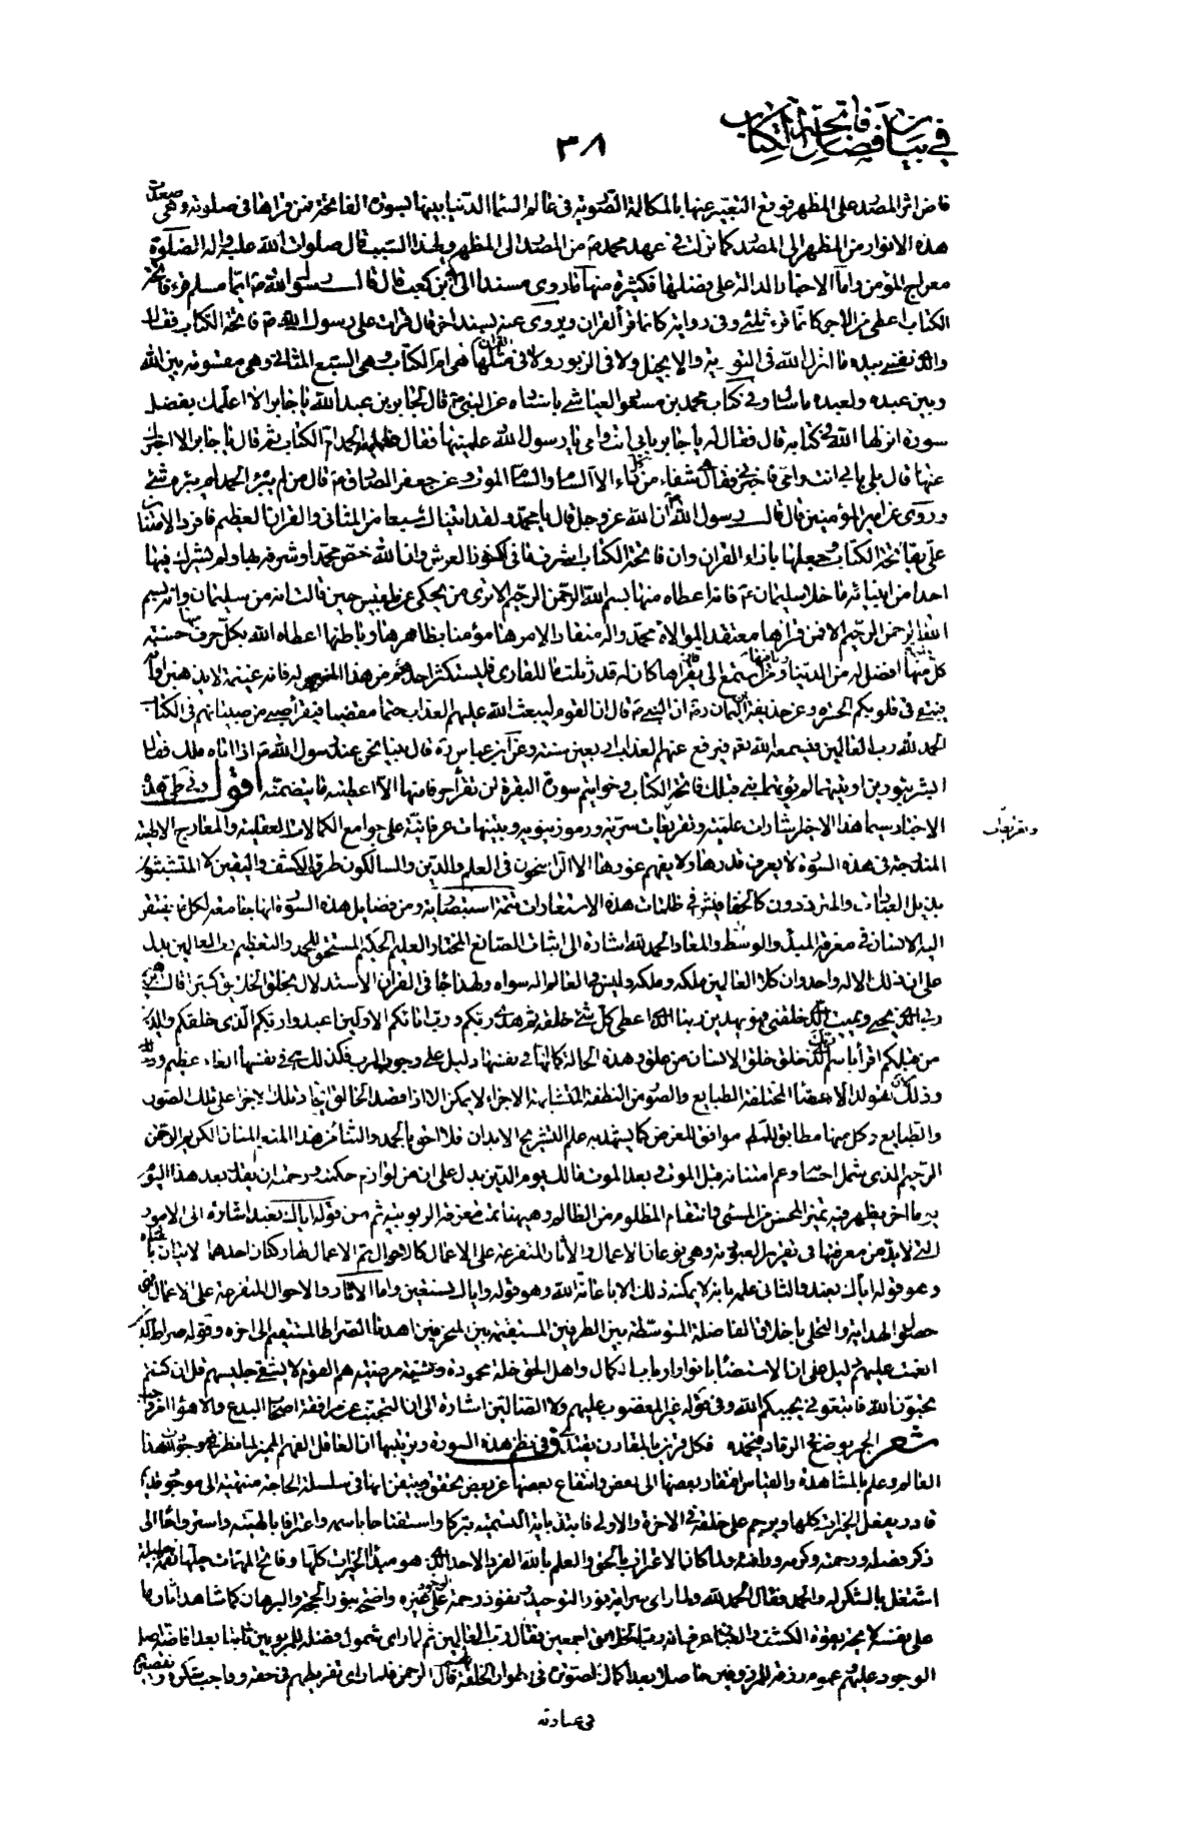 في بيان فضايل فاتحة الكتاب
٣٨
فاض اثر المصدر على المظهر فوقع التعبير عنها بالمكالمة الصورية في عالم السماء الدنيا بينهما بسورة الفاتحة فمن قراها في صلوته وهي صعدت
هذه الانوار من المظهر الى المصدر كما نزلت في عهد محمد ص من المصدر الى المظهر ولهذا السبب قال صلوات الله عليه واله الصلوة
معراج المؤمن واما الاخبار الدالة على فضلها فكثيرة منها ما روى مسندا الى ابي بن كعب قال قال رسول الله ص ايما مسلم قرء فاتحة
الكتاب اعطي من الاجر كانما قرء ثلثي وفي رواية كانما قرأ القران ويروى عنه بسند اخر قال قرات على رسول الله ص فاتحة الكتاب فقال
والذي نفسي بيده ما انزل الله في التورية والانجيل ولا في الزبور ولا في القران مثلها هي ام الكتاب وهي السبع المثاني وهي مقسومة بين الله
وبين عبده ولعبده ما سئل وفي كتاب محمد بن مسعود العياشي باسناده عن النبي ص قال لجابر بن عبد الله يا جابر الا اعلمك بفضل
سورة انزلها الله في كتابه قال فقال له يا جابر بابي انت وامي يا رسول الله علمنيها فقال فعلمه الحمد ام الكتاب ثم قال يا جابر الا اخبرك
عنها قال بلى بابي انت وامي فاخبرني فقال هي شفاء من كل داء الا السام والسام الموت وعن جعفر الصادق ع قال من لم يبرئه الحمد لم يبرئه شئ
وروى عن امير المؤمنين قال قال رسول الله ص ان الله عز وجل قال يا محمد ولقد اتيناك سبعا من المثاني والقران العظيم فافرد الامتنان
علي بفاتحة الكتاب وجعلها بازاء القران وان فاتحة الكتاب اشرف ما في كنوز العرش وان الله خص محمدا وشرفه بها ولم يشرك فيها
احدا من انبيائه ما خلا سليمان ع فانه اعطاه منها بسم الله الرحمن الرحيم الا ترى من يحكي عن بلقيس حين قالت انه من سليمان وانه بسم
الله الرحمن الرحيم الا فمن قراها معتقدا لموالاة محمد واله منقادا لامرها مؤمنا بظاهرها وباطنها اعطاه الله بكل حرف منها حسنة
كل منها افضل له من الدنيا وما فيها ومن استمع الى قارئ يقراها كان له قدر ثلث ما للقارئ فليستكثر احدكم من هذا الخير له فانه غنيمة لا يذهبن اوانه
يبقى في قلوبكم الحسرة وعن حذيفة بن اليمان ره ان النبي ص قال ان القوم ليبعث الله عليهم العذاب حتما مقضيا فيقرأ صبي من صبيانهم في الكتاب
الحمد لله رب العالمين فيسمعه الله تع فيرفع عنهم العذاب اربعين سنة وعن ابن عباس ره قال بينا نحن عند رسول الله ص اذا اتاه ملك فقال
ابشر بنورين اوتيتهما لم يؤتهما نبي قبلك فاتحة الكتاب وخواتيم سورة البقرة لن تقرأ حرفا منها الا اعطيته ما يتضمنه اقول وفي طي هذه
الاخبار سيما هذا الاخير اشارات علمية وتعريفات سرية ورموز نبوية وتنبيهات عرفانية على جوامع الكمالات العقلية والمعارج الالهية
المندرجة في هذه السورة لا يعرف قدرها ولا يفهم غورها الا الراسخون في العلم والدين والسالكون طرق الكشف واليقين لا المتشبثون
بذيل العبارات والمترددون كالخفافيش في ظلمات هذه الاستعارات تتمة استبصارية ومن فضايل هذه السورة انها جامعة لكل ما يفتقر
اليه الانسان في معرفة المبدا والوسط والمعاد الحمد لله اشارة الى اثبات الصانع المختار العليم الحكيم المستحق للحمد والتعظيم رب العالمين يدل
على ان ذلك الاله واحد وان كل العالمين ملكه وملكه وليس في العالم اله سواه ولهذا جاء في القران الاستدلال بخلق الخلايق كثيرا قال ابراهيم
ربي الذي يحيي ويميت الذي خلقني فهو يهدين ربنا الذي اعطى كل شئ خلقه ثم هدى ربكم ورب ابائكم الاولين اعبدوا ربكم الذي خلقكم والذين
من قبلكم اقرأ باسم ربك الذي خلق خلق الانسان من علق وهذه الحالة كما انها في نفسها دليل على وجود الرب فكذلك هي في نفسها انعام عظيم
وذلك تولد الاعضاء المختلفة الطبايع والصور من النطفة المتشابهة الاجزاء لا يمكن الا اذا قصد الخالق ايجاد تلك الاجزاء على تلك الصور
والطبايع وكل منها مطابق للمط موافق للغرض كما يشهد به علم التشريح الابدان فلا احق بالحمد والثناء من هذا المنعم المنان الكريم الرحمن
الرحيم الذي شمل احسانه وعم امتنانه قبل الموت وبعد الموت مالك يوم الدين يدل على ان من لوازم حكمته ورحمته ان يقدر بعد هذا اليوم
يوما اخر يظهر فيه تميز المحسن من المسئ وانتقام المظلوم من الظالم وهيهنا تمت معرفة الربوبية ثم من قوله اياك نعبد اشارة الى الامور
التي لا بد من معرفتها في تقرير العبودية وهي نوعان الاعمال والاثار المتفرعة على الاعمال كالاحوال ثم الاعمال لها ركنان احدهما الاتيان بالعبادة
وهو قوله اياك نعبد والثاني علمه بانه لا يمكنه ذلك الا باعانة الله وهو قوله واياك نستعين واما الاثار والاحوال المتفرعة على الاعمال فهي
حصول الهداية والتحلي باخلاق الفاضلة المتوسطة بين الطرفين المستقيمة بين المنحرفين اهدنا الصراط المستقيم الى اخره وقوله صراط الذين
انعمت عليهم دليل على ان الاستضاءة بانوار ارباب الكمال واهل الحق خلة محمودة وشيمة مرضية هم القوم لا يشقى جليسهم قل ان كنتم
تحبون الله فاتبعوني يحببكم الله وفي قوله غير المغضوب عليهم ولا الضالين اشارة الى ان التجنب عن مرافقة اصحاب البدع والاهواء امر واجب
شعر الجمر يوضع في الرماد فيخمد فكل قرين بالمقارن يقتدي وفي نظم هذه السورة وترتيبها ان العاقل الفهم المميز لما نظر في موجودات هذا
العالم وعلم بالمشاهدة والقياس افتقار بعضها الى بعض وانتفاع بعضها عن بعض تحقق وتيقن انها في سلسلة الحاجة منتهية الى موجود
قادر يفعل الخيرات كلها ويرحم على خلقه في الاخرة والاولى فابتدء باية التسمية تبركا واستفتاحا باسمه واعترافا بالهيته واسترواحا الى
ذكر فضله ورحمته وكرمه ورأفته ولما كان الاعتراف بالحق والعلم بالله الفرد الاحد الذي هو مبدا الخيرات كلها وفاتح المهمات جلها نعمة جليلة
اشتغل بالشكر له والحمد فقال الحمد لله ولما راى سراية نور التوحيد ونفوذ رحمة الوجود على غيره واضحة بنور الحجة والبرهان كما شاهد اثارها
على نفسه لا محة بقوة الكشف والعيان عرف انه رب الخلايق اجمعين فقال رب العالمين ثم لما راى شمول فضله للمربوبين ثابتا بعد افاضة اصل
الوجود عليهم وعموم رزقه للمرزوقين حاصلا بعد اكمال الصورة في اطوار الخلقة قال الرحمن فلما راى تفريطهم في حقه وواجب شكره وتقصيرهم
في عبادته